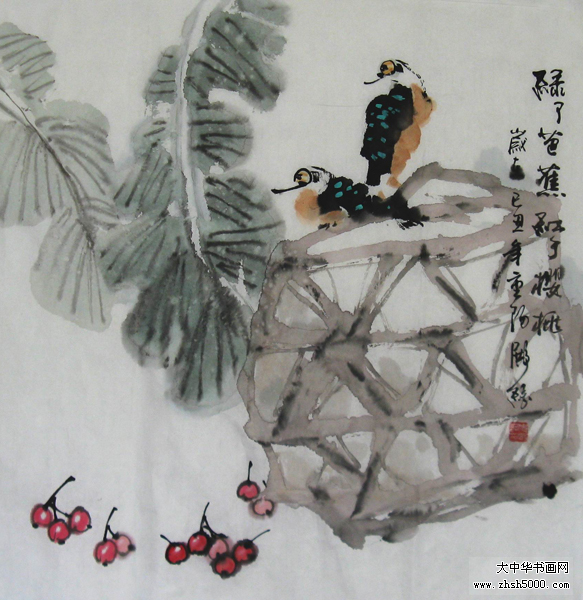 绿了芭蕉红了樱桃
岁在己丑年重阳
大中华书画网
www.zhsh5000.com